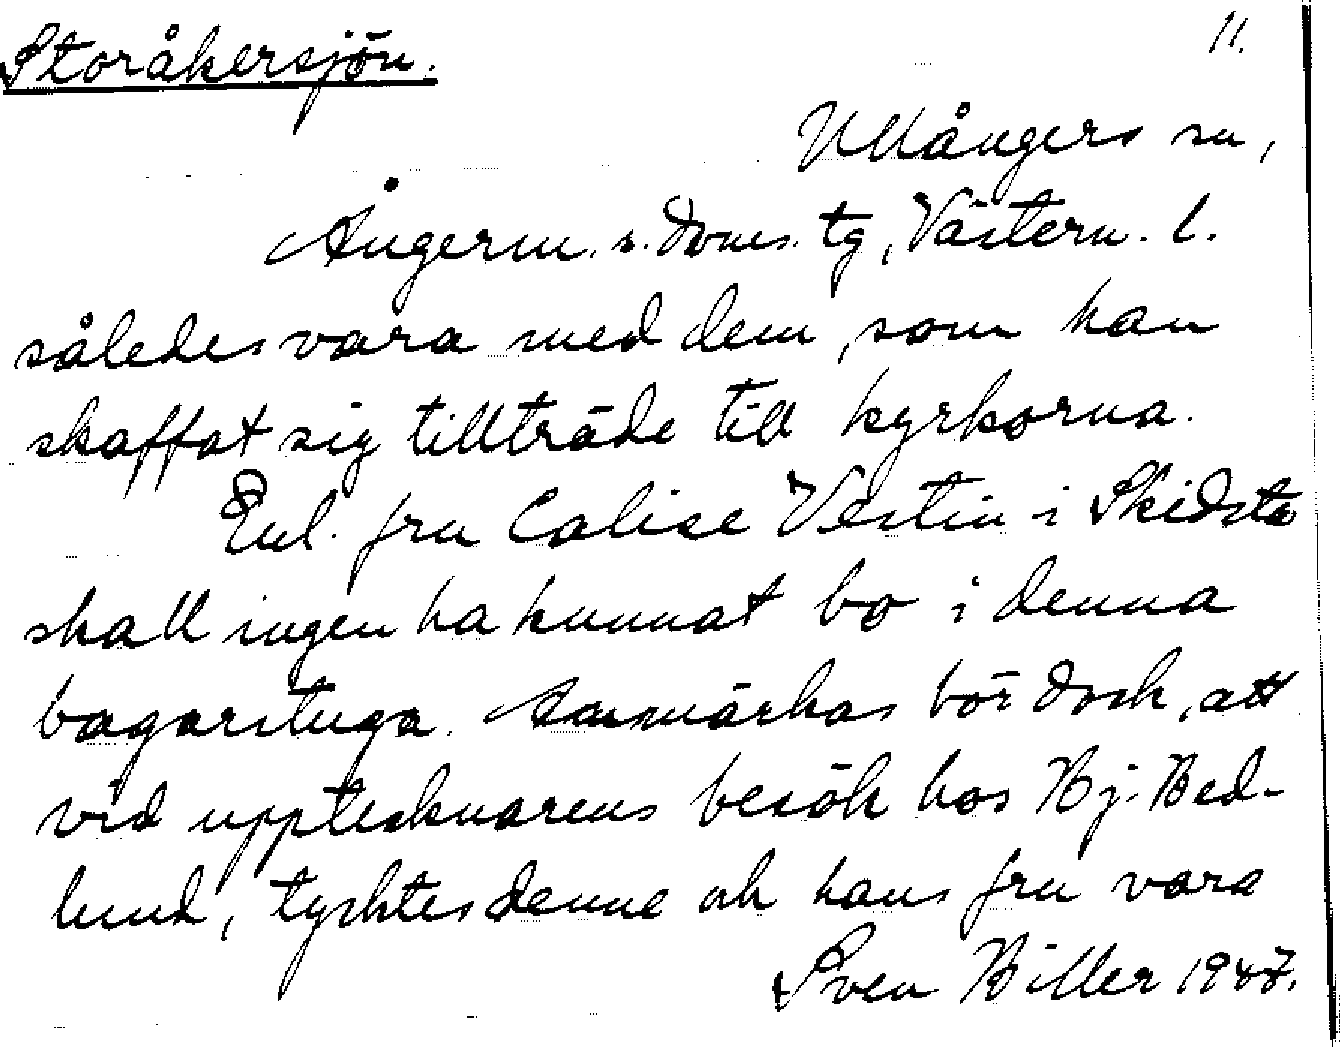 Storåkersjön.
11.
Ullångers sn,
Ångerm. s. doms. tg, Västern. l.
således vara med dem, som han
skaffat sig tillträde till kyrkorna.
Enl. fru Calise Vestin i Skidsta
skall ingen ha kunnat bo i denna
bagarstuga. Anmärkas bör dock, att
vid upptecknarens besök hos Bj. Bed-
lund, tycktes denne och hans fru vara
Sven Biller 1947.